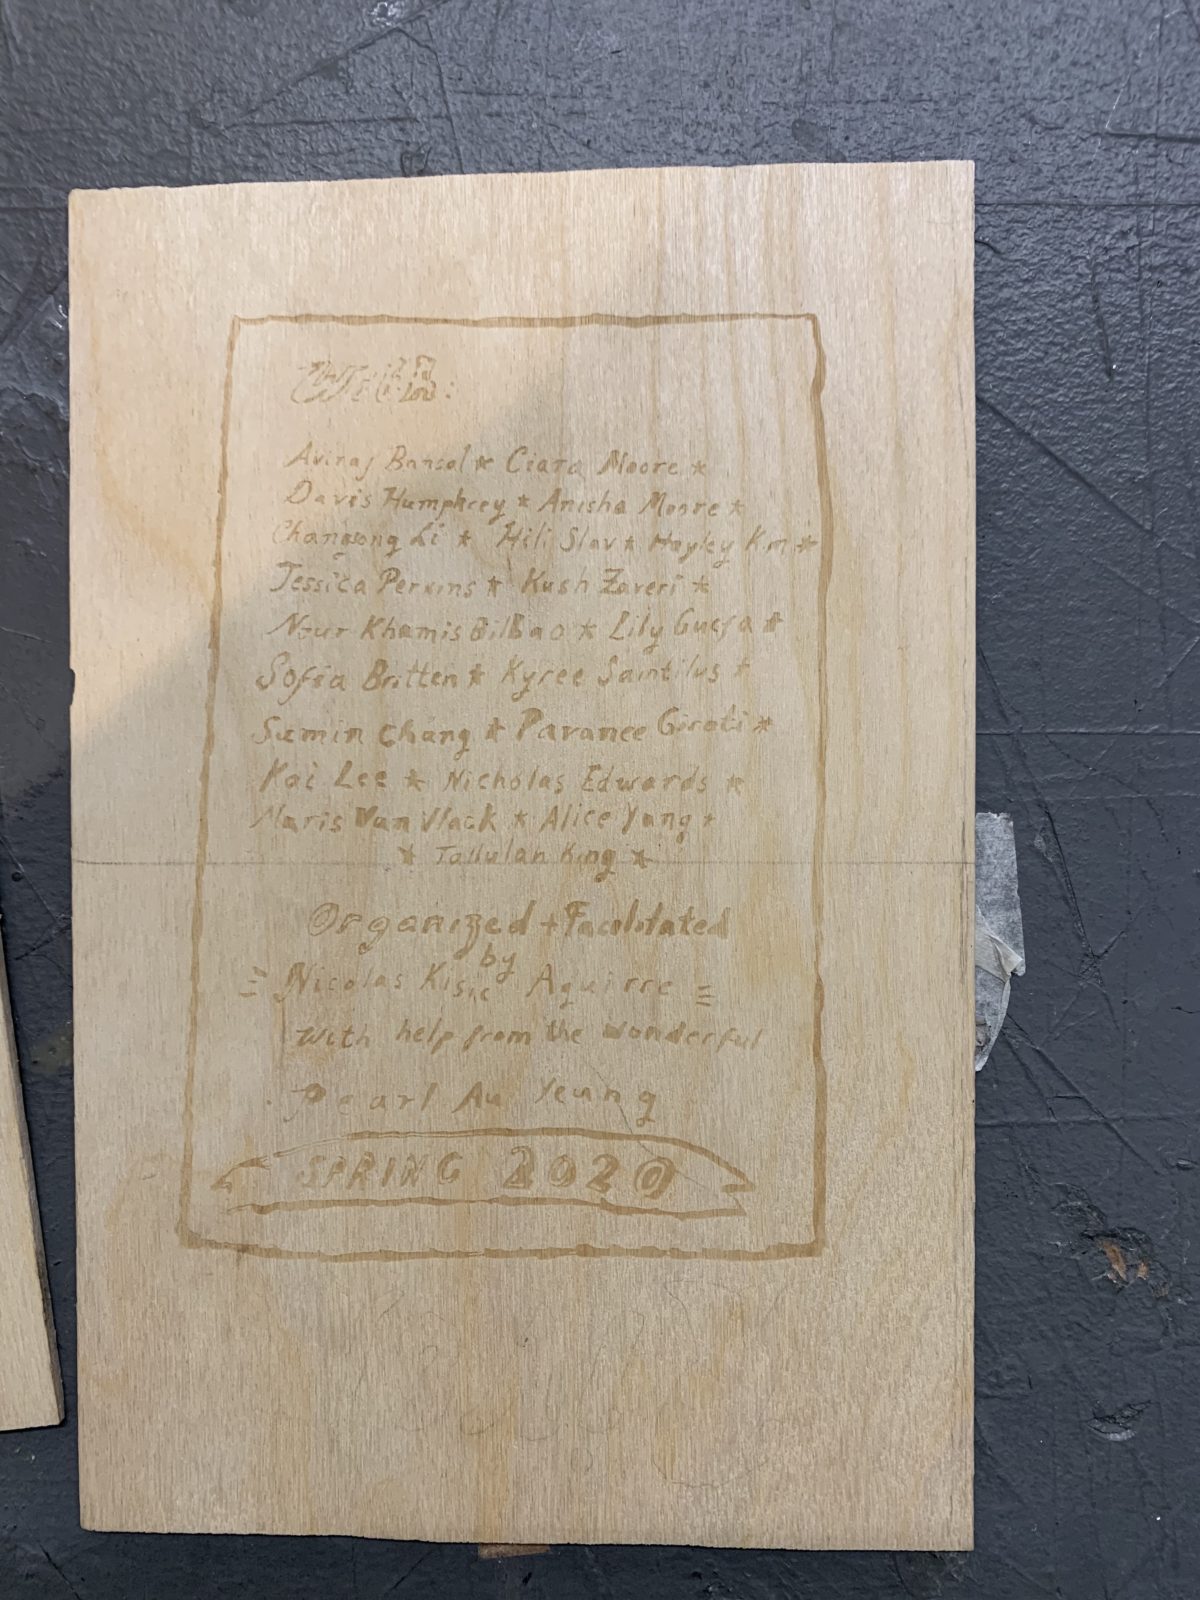 Aviraj Bansal * Ciara Moore *
Davis Humphrey * Anisha Moore *
Changsong Li * Hili Slav * Hayley Kim *
Jessica Perkins * Kush Zaveri *
Nour Khamis Bilbao * Lily Guefa *
Sofia Britten * Kyree Saintilus *
Sumin Chang * Paranee Giroti *
Kai Lee * Nicholas Edwards *
Maris Van Vlack * Alice Yang *
* Tallulah King *
Organized + Facilitated
by
Nicolas Kisic Aguirre
With help from the wonderful
Pearl Au Yeung
SPRING 2020